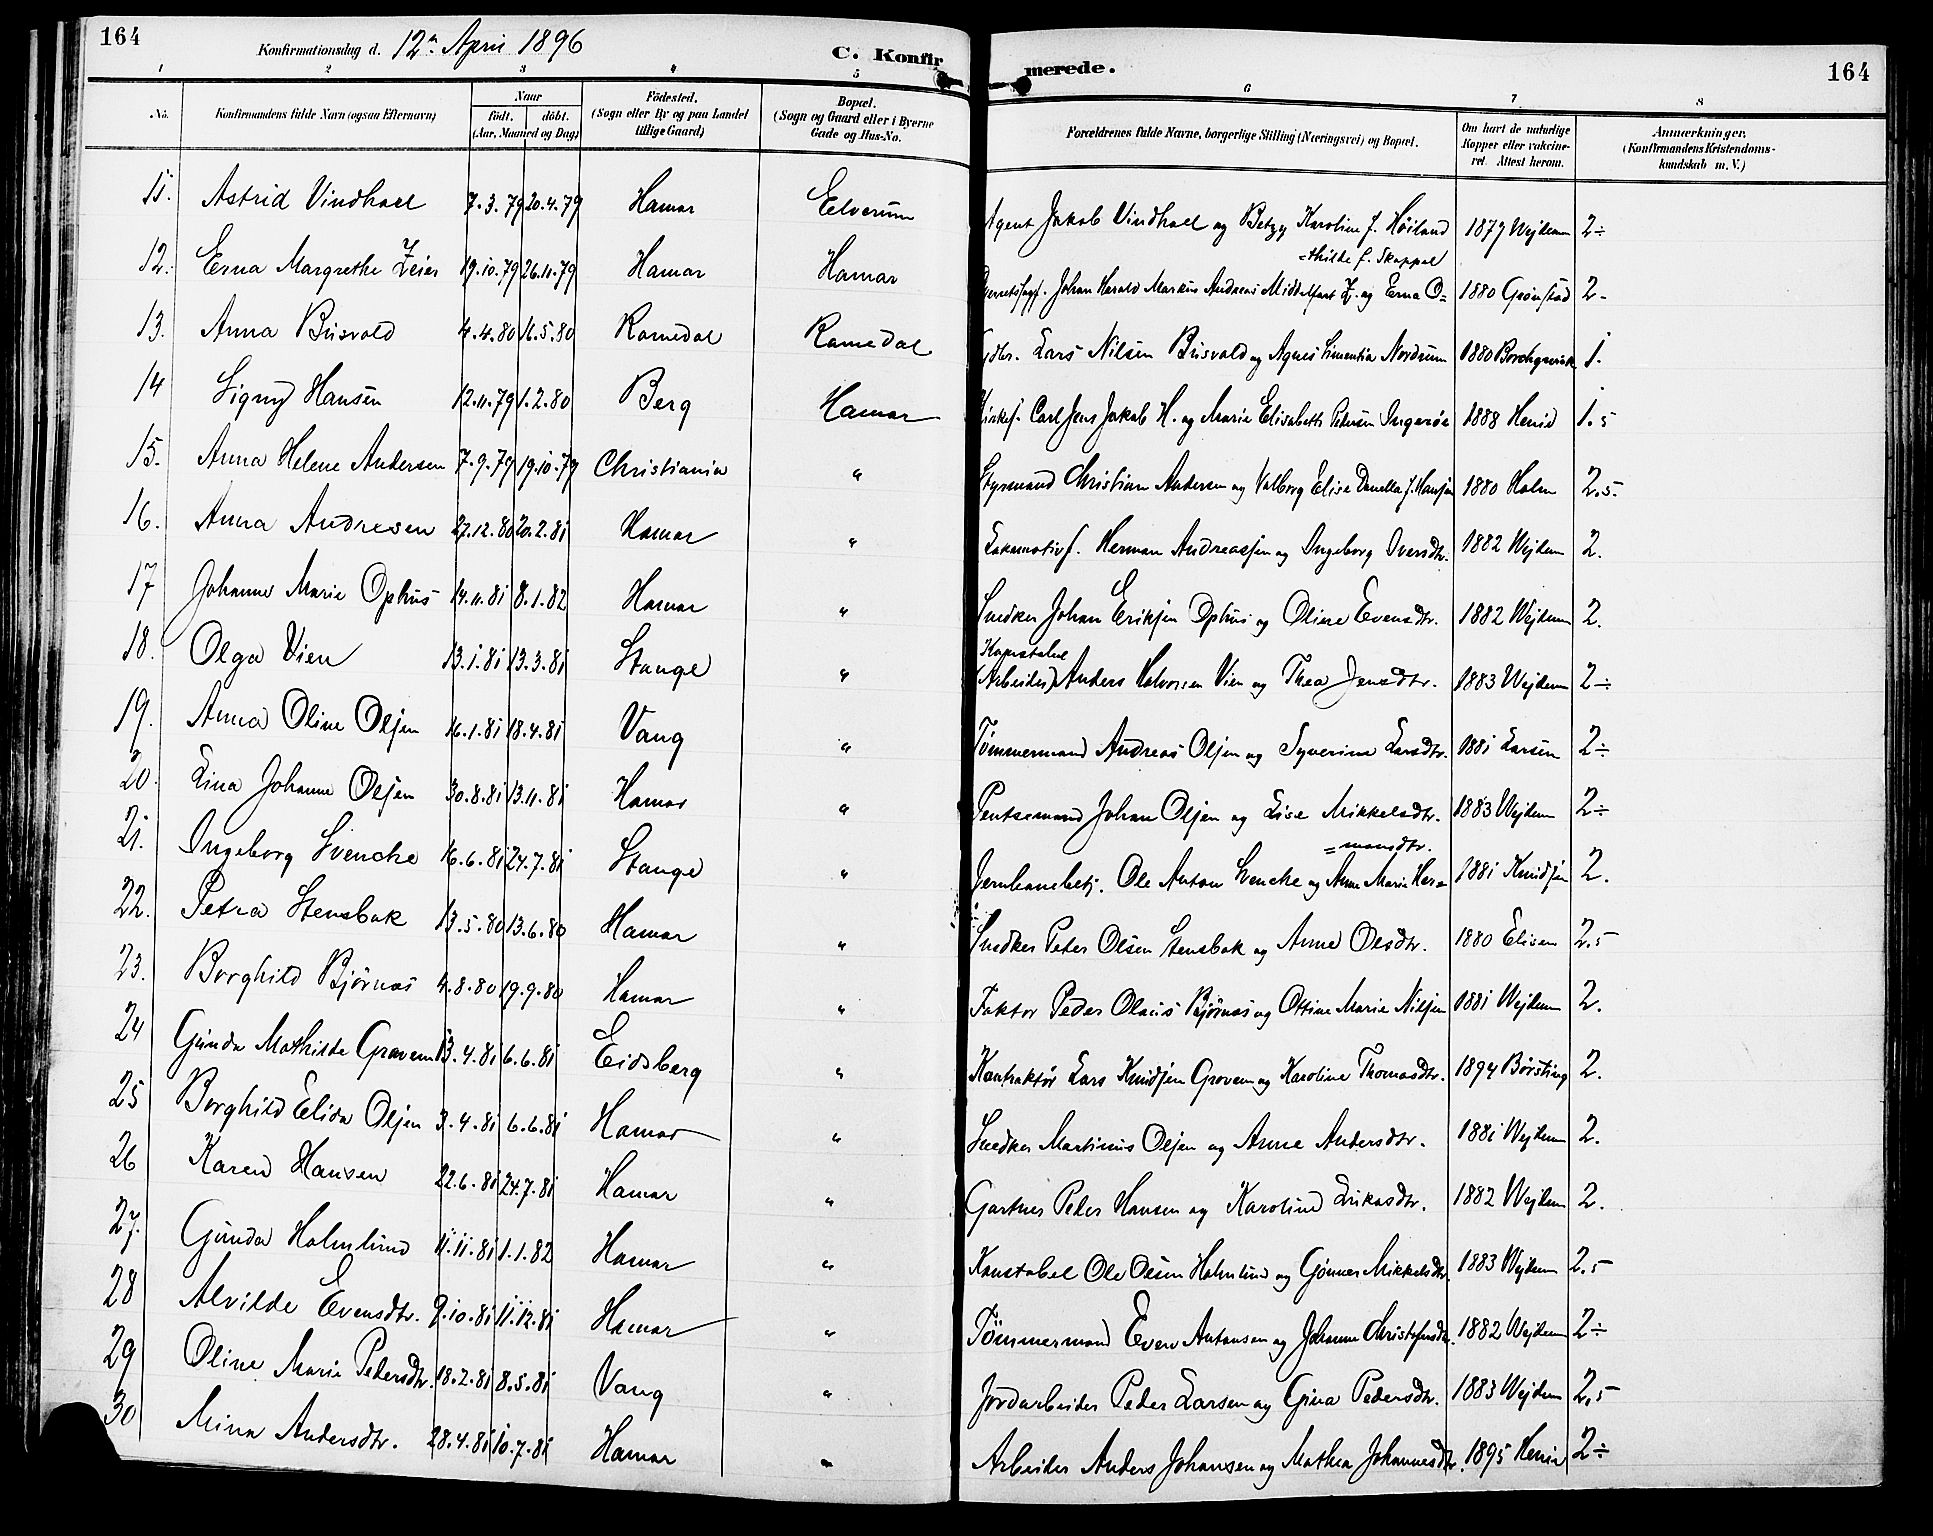 164
Konfirmationsdag d. 12te April 1896
C. Konfirmerede.
164
1 2 3 4 5 6 7 8
No. Konfirmandens fulde Navn (ogsaa Efternavn) Naar födt. döbt. (Aar, Maaned og Dag) Födested. (Sogn eller By og paa Landet tillige Gaard) Bopæl. (Sogn og Gaard eller i Byerne Gade og Hus-No. Forældrenes fulde Navne, borgerlige Stilling (Næringsvei) og Bopæl. Om havt de naturlige Kopper eller vakcineret. Attest herom. Anmærkninger. (Konfirmandens Kristendomskundskab m. V.)
11. Astrid Vindhael 7.3.79 20.4.79 Hamar Elverum Agent Jakob Vindhael og Betzy Karoline f. Höiland 1879 Wejdem 2÷
=thilde f. Skappel
12. Erna Margrethe Zeier 19.10.79 26.11.79 Hamar Hamar Johan Harald Markus Andreas Middelfart Z. og Erna O= 1880 Grönstad 2-
13. Anna Busvold 4.4.80 16.5.80 Romedal Romedal Gdbr. Lars Nilsen Busvold og Agnes Simentia Nordrum 1880 Borchgrevink 1.
14 Signy Hansen 12.11.79 1.2.80 Berg Hamar Carl Jens Jakob H. og Marie Elisabeth Petersen Ingeröe 1888 Henie 1.5
15. Anna Helene Andersen 7.9.79 19.10.79 Christiania " Styrmand Christian Andersen og Valborg Elise Danella f. Hansen 1880 Holm 2.5.
16. Anna Andresen 27.12.80 20.2.81 Hamar " Lokomotivf. Herman Andreassen og Ingeborg Iversdtr. 1882 Wejdem 2.
17 Johanne Marie Ophus 14.11.81 8.1.82 Hamar " Snedker Johan Eriksen Ophus og Oline Evensdtr. 1882 Wejdem 2.
Konstabel
18. Olga Vien 13.1.81 13.3.81 Stange " (Arbeider) Anders Halvorsen Vien og Thea Jensdtr. 1883 Wejdem 2÷
19. Anna Oline Olsen 16.1.81 18.4.81 Vang " Tömmermand Andreas Olsen og Syverine Larsdtr. 1881 Larsen 2÷
20. Lina Johanne Olsen 30.8.81 13.11.81 Hamar " Pentsemand Johan Olsen og Lise Mikkelsdtr. 1883 Wejdem 2÷
=mansdtr.
21. Ingeborg Svencke 16.6.81 24.7.81 Stange " Jernbanebetj. Ole Anton Svencke og Anne Marie Her= 1881 Knudsen 2.
22. Petra Stensbak 13.5.80 13.6.80 Hamar " Snedker Peter Olsen Stensbak og Anne Olsdtr. 1880 Elisen 2.5
23. Borghild Björnæs 4.8.80 19.9.80 Hamar " Faktor Peder Olaus Björnæs og Ottine Marie Nilsen 1881 Wejdem 2.
24 Gunda Mathilde Gravem 13.4.81 6.6.81 Eidsberg " Kontraktör Lars Knudsen Gravem og Karoline Thomasdtr. 1894 Börsting 2.
25 Borghild Elida Olsen 3.4.81 6.6.81 Hamar " Snedker Martinius Olsen og Anne Andersdtr. 1881 Wejdem 2.
26 Karen Hansen 22.6.81 24.7.81 Hamar " Gartner Peder Hansen og Karoline Eriksdtr. 1882 Wejdem 2.
27. Gunda Holmlund 11.11.81 1.1.82 Hamar " Konstabel Ole Olsen Holmlund og Gönner Mikkelsdtr. 1883 Wejdem 2.5
28 Alvilde Evensdtr. 9.10.81 11.12.81 Hamar " Tömmermand Even Antonsen og Johanne Christofersdtr. 1882 Wejdem 2÷
29 Oline Marie Pedersdtr. 18.2.81 8.5.81 Vang " Jordarbeider Peder Larsen og Gina Pedersdtr. 1883 Wejdem 2.5
30 Mina Andersdtr. 28.4.81 10.7.81 Hamar " Arbeider Anders Johansen og Mathea Johannesdtr. 1895 Henie 2÷